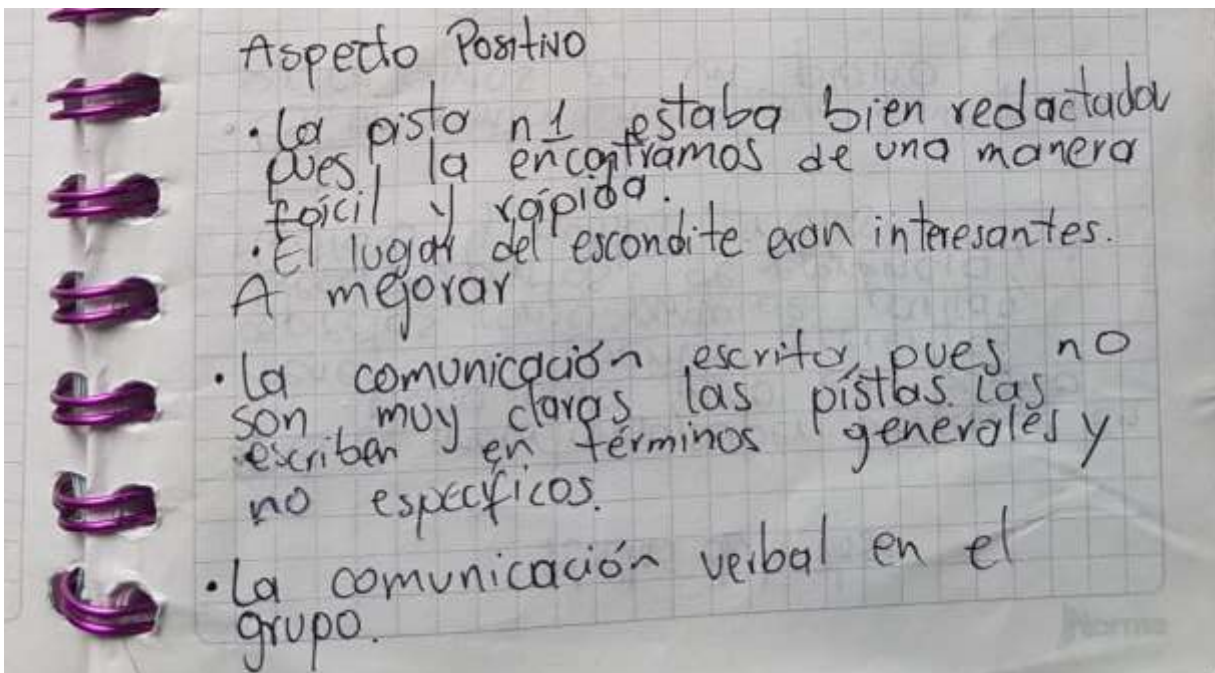 Aspecto Positivo
• La pista n1 estaba bien redactada
pues, la encontramos de una manera
fácil y rápida.
• El lugar del escondite eran interesantes.
A mejorar
• La comunicación escrita, pues no
son muy claras las pistas. Las
escriben en términos generales y
no específicos.
• La comunicación verbal en el
grupo.
Norma